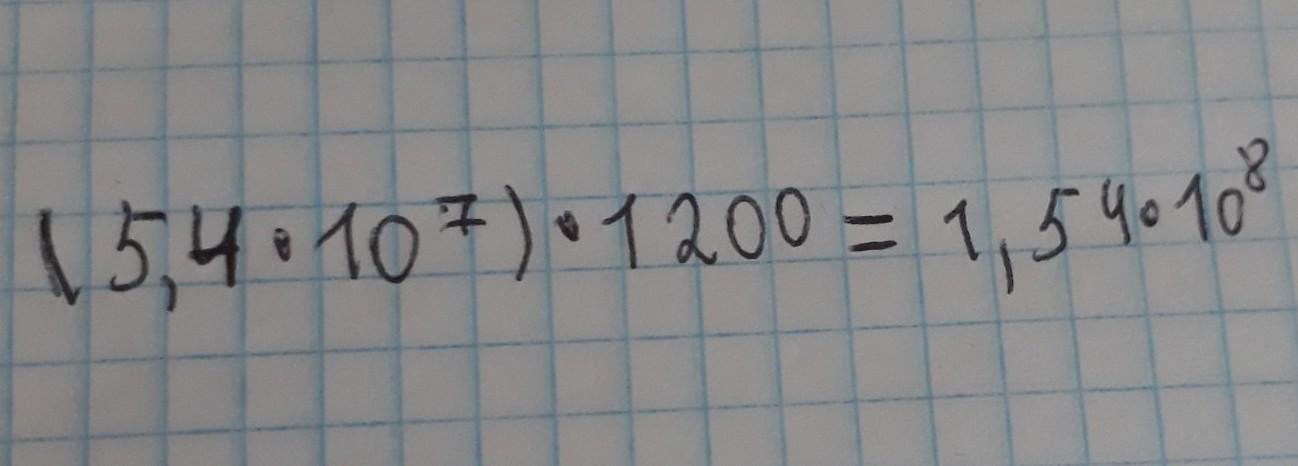 (5,4·10⁷)·1200=1,54·10⁸